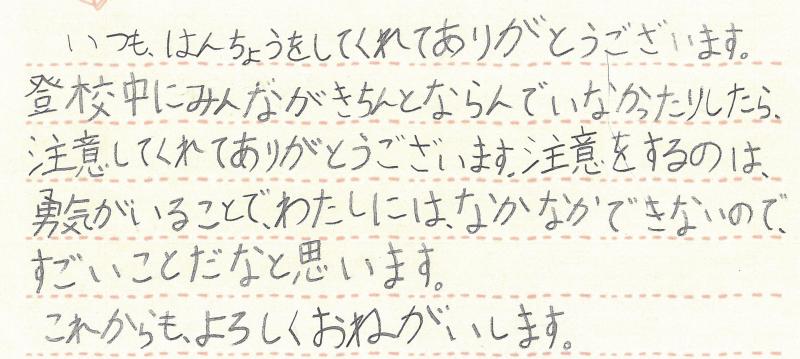 いつも、はんちょうをしてくれてありがとうございます。
登校中にみんながきちんとならんでいなかったりしたら、
注意してくれてありがとうございます。注意をするのは、
勇気がいることで、わたしには、なかなかできないので、
すごいことだなと思います。
これからも、よろしくおねがいします。